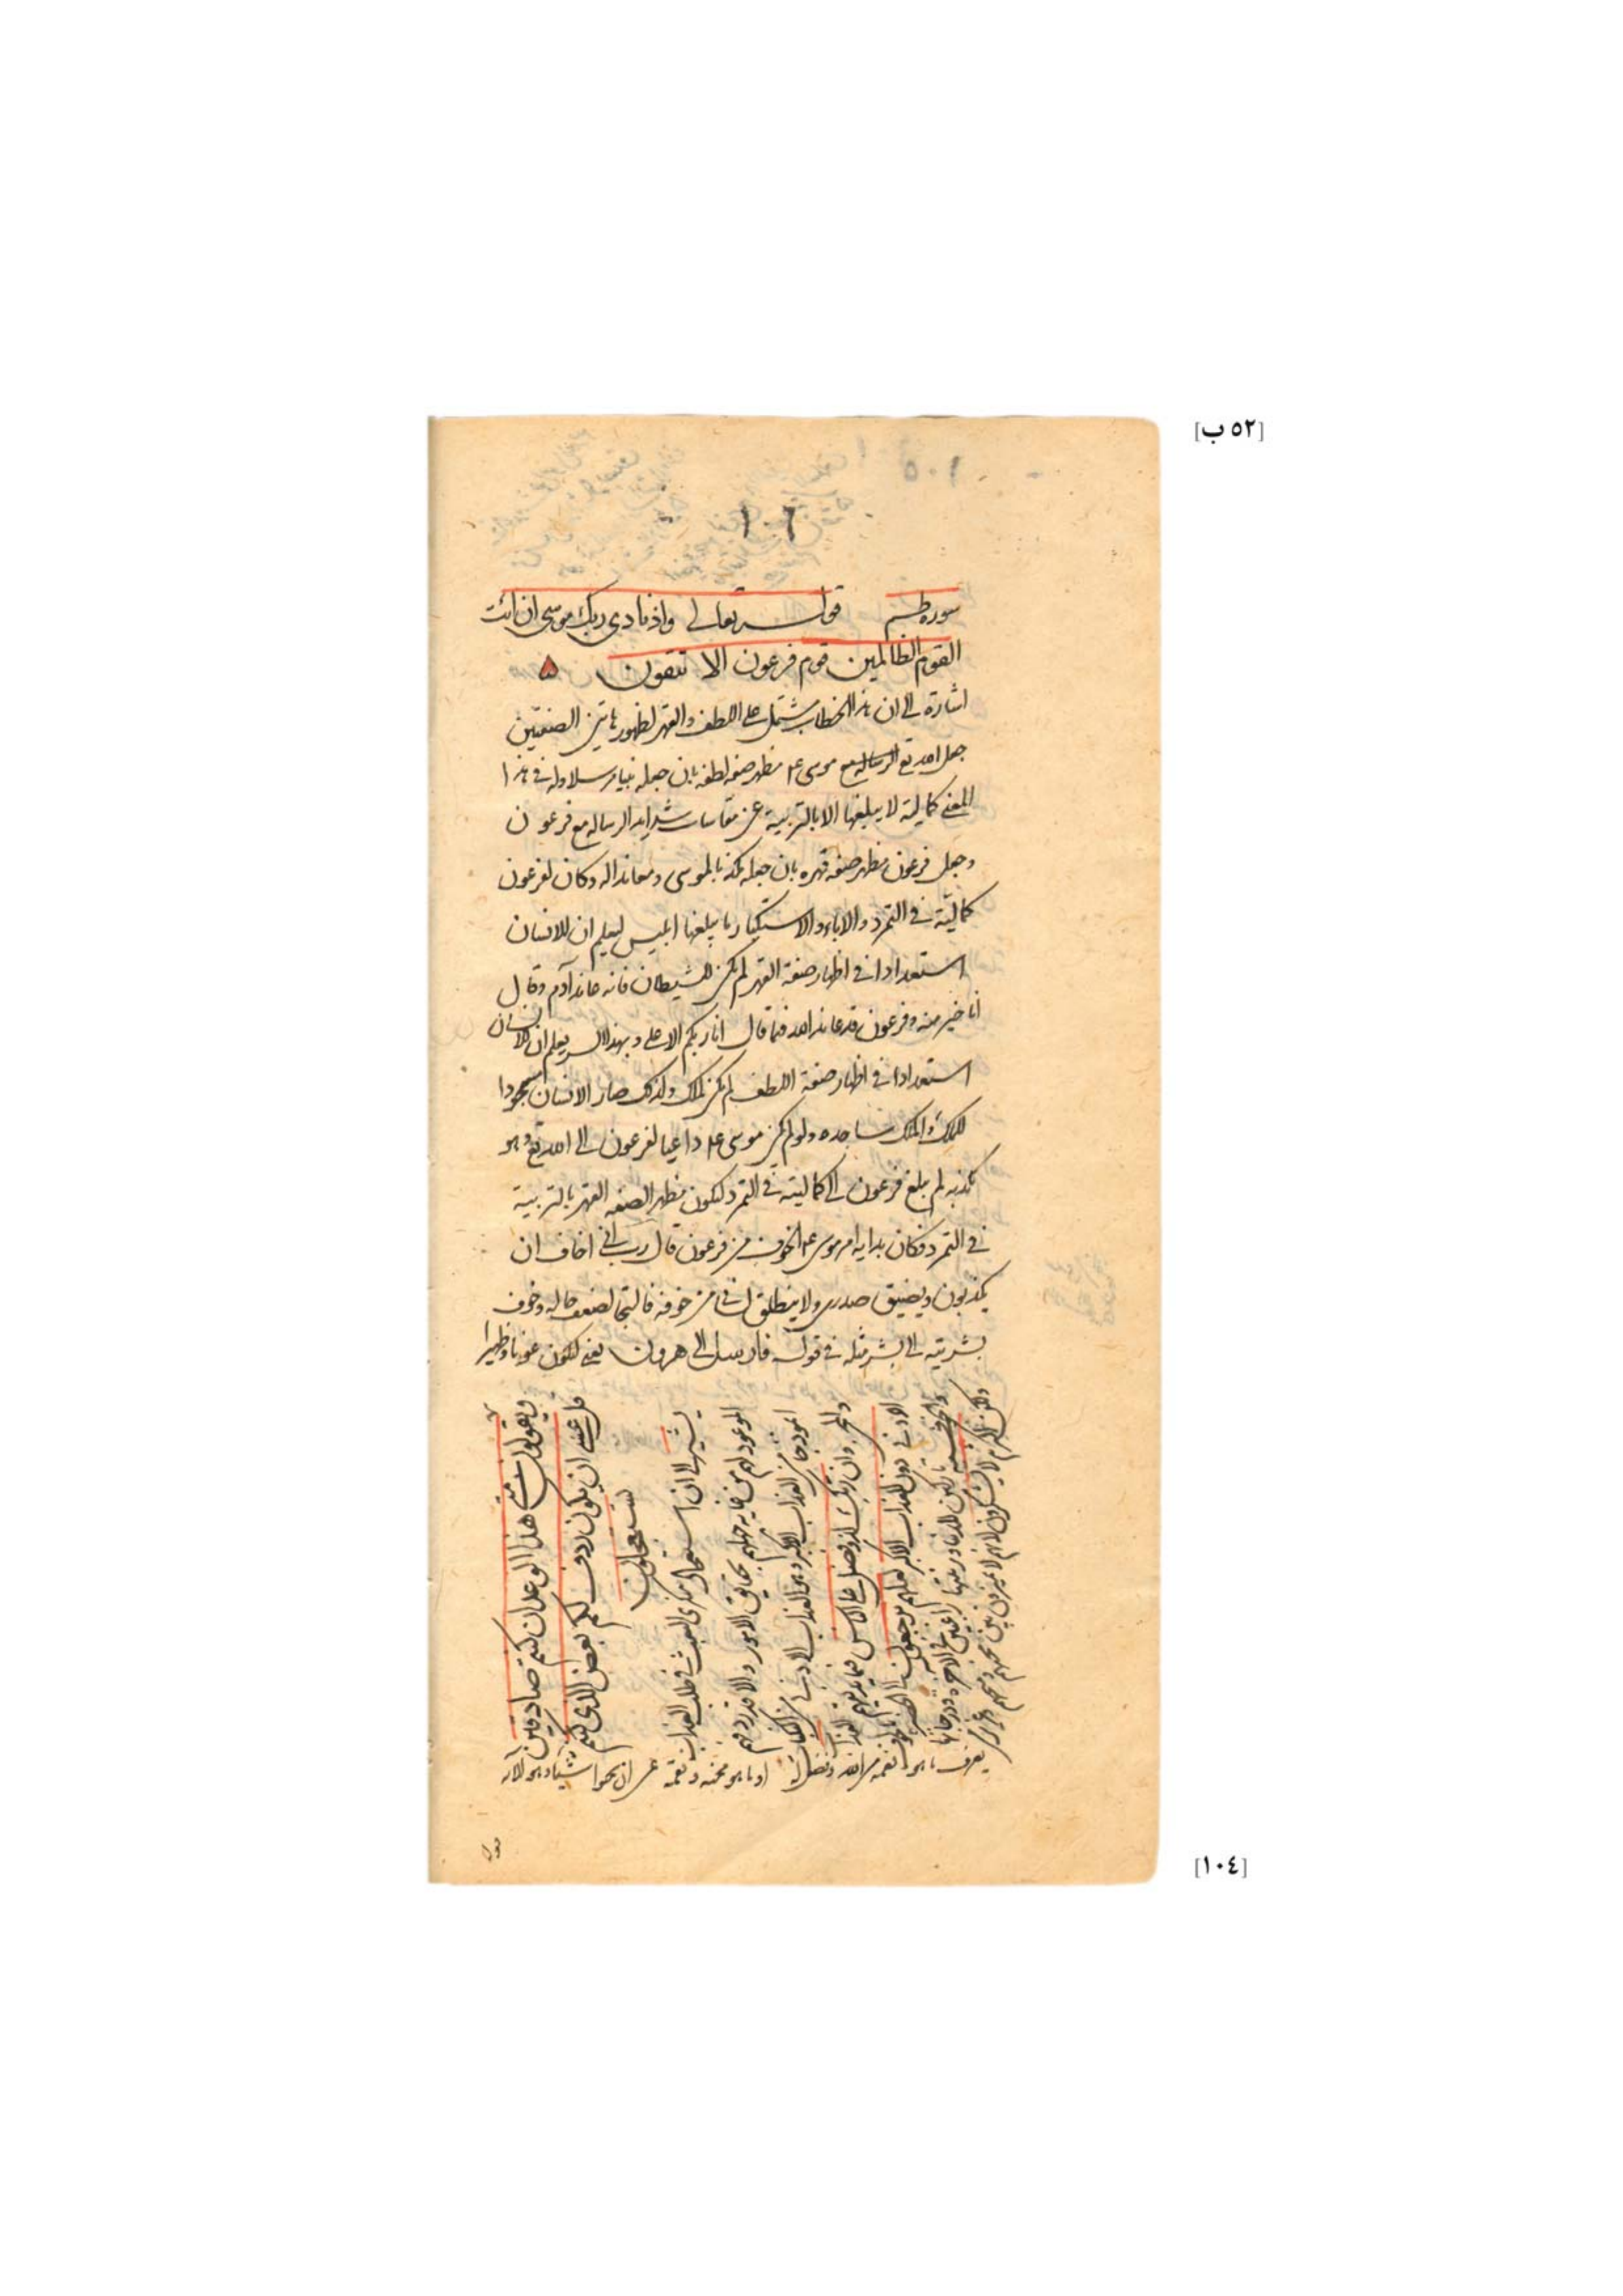 [٥٢ ب]
٥٠١
١٠٢
سوره طسم قوله تعالى واذ نادى ربك موسى ان ائت
القوم الظالمين قوم فرعون الا تتقون
اشارة الى ان هذا الخطاب يشتمل على اللطف والقهر لظهور هاتين الصفتين
جعل الله تع موسى عم مظهر صفه لطفه بان جعله نبيا مرسلا وله فى هذا
المعنى كمالية لا يبلغها الا بالتربية عن مقاسات شدايد الرساله مع فرعون
وجعل فرعون مظهر صفه قهره بان جعله مكذبا لموسى ومعاندا له وكان لفرعون
كمالية فى التمرد والاباء والاستكبار ما يبلغها ابليس ليعلم ان للانسان
استعدادا فى اظهار صفة القهر لم يكن للشيطان فانه عاند آدم وقال
انا خير منه وفرعون قد عاند الله فما قال انا ربكم الاعلى وبهذا السر يعلم ان للانسان
استعدادا فى اظهار صفة اللطف لم يكن لملك ولذلك صار الانسان مسجودا
للملك والملك ساجده ولو لم يكن موسى عم داعيا لفرعون الى الله تع وهو
مكذبه لم يبلغ فرعون الى كماليته فى التمرد ليكون مظهرا لصفه القهر بالتربية
فى التمرد فكان بداية امر موسى عم الخوف من فرعون قال رب انى اخاف ان
يكذبون ويضيق صدرى ولا ينطلق لسانى من خوفه فالتجا لضعف حاله وخوف
بشريته الى بشر مثله فى قوله فارسل الى هرون يعنى ليكون عونا وظهيرا
ويقولون متى هذا الوعد ان كنتم صادقين
قل عسى ان يكون ردف لكم بعض الذى
تستعجلون
يشير الى ان استعجال منكرى البعث فى طلب العذاب
الموعود لهم من غاية جهلهم بحقايق الامور والا فقد ردفهم
انموذجا من العذاب الاكبر وهو العذاب الادنى من
والمحن وان ربك لذو فضل على الناس فيما يذيقهم العذاب
الادنى دون العذاب الاكبر لعلهم يرجعون الى الحضره
ولكن اكثرهم لا يشكرون لانهم لا يميزون بين محنهم ومنحهم وعزيز من
يعرف ما هو نعمة من الله وفضل له او ما هو محنة ونقمة عسى ان تحبوا شيئا وهو الآيه
قوله
[١٠٤]